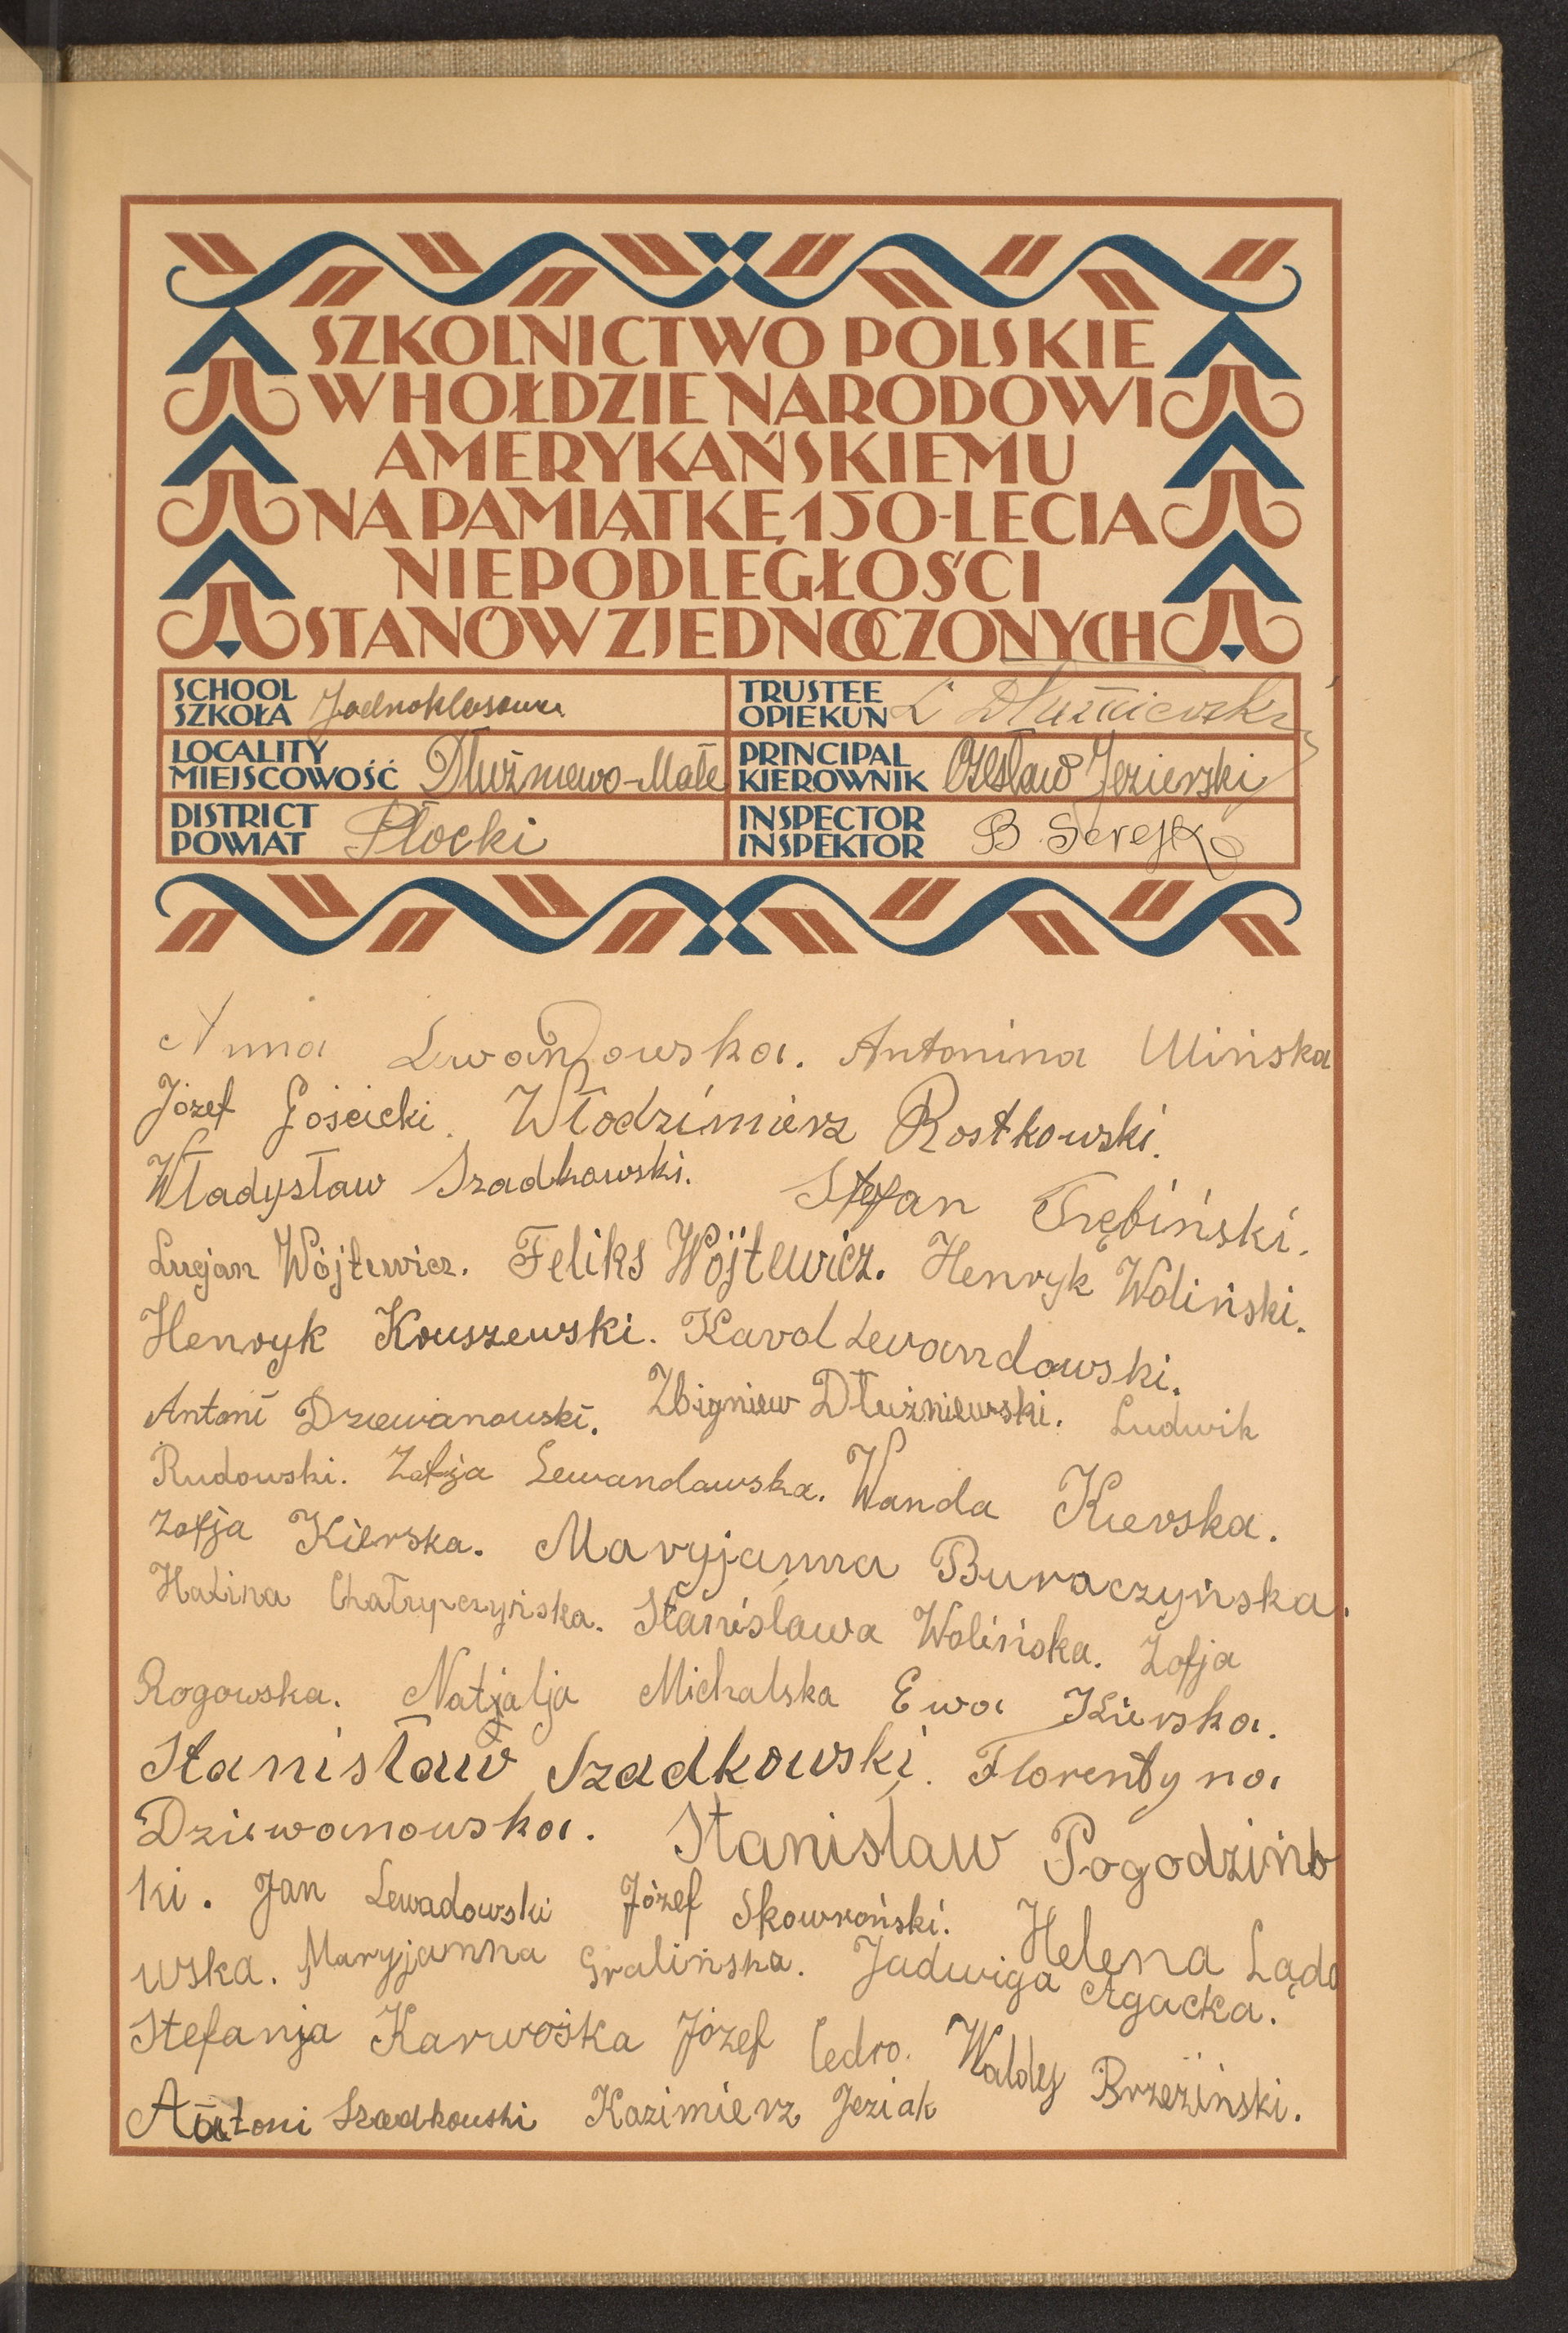 SZKOLNICTWO POLSKIE
W HOŁDZIE NARODOWI
AMERYKAŃSKIEMU
NA PAMIĄTKĘ 150-LECIA
NIEPODLEGŁOŚCI
STANÓW ZJEDNOCZONYCH
SCHOOL
SZKOŁA Jednoklasowa
TRUSTEE
OPIEKUN L Dłużniewski
LOCALITY
MIEJSCOWOŚĆ Dłużniewo-Małe
PRINCIPAL
KIEROWNIK Czesław Jezierski
DISTRICT
POWIAT Płocki
INSPECTOR
INSPEKTOR B. Serejko
Anna Lewandowska. Antonina Ulińska
Józef Gościcki. Włodzimierz Rostkowski.
Władysław Szadkowski. Stefan Trębiński.
Lucjan Wójtewicz. Feliks Wójtewicz. Henryk Woliński.
Henryk Kruszewski. Karol Lewandowski.
Antoni Dziewanowski. Zbigniew Dłużniewski. Ludwik
Rudowski. Zofja Lewandawska. Wanda Kierska.
Zofja Kierska. Maryjanna Buraczyńska.
Halina Chałupczyńska. Stanisława Wolińska. Zofja
Rogowska. Natjalja Michalska Ewa Kierska.
Stanisław Szadkowski. Florentyna
Dziewanowska. Stanisław Pogodzińs
ki. Jan Lewadowski Józef Skowroński. Helena Lądo
wska. Maryjanna Gralińska. Jadwiga Agacka.
Stefanja Karwoska Józef Cedro. Waldy Brzeziński.
Antoni Szadkowski Kazimierz Jeziak